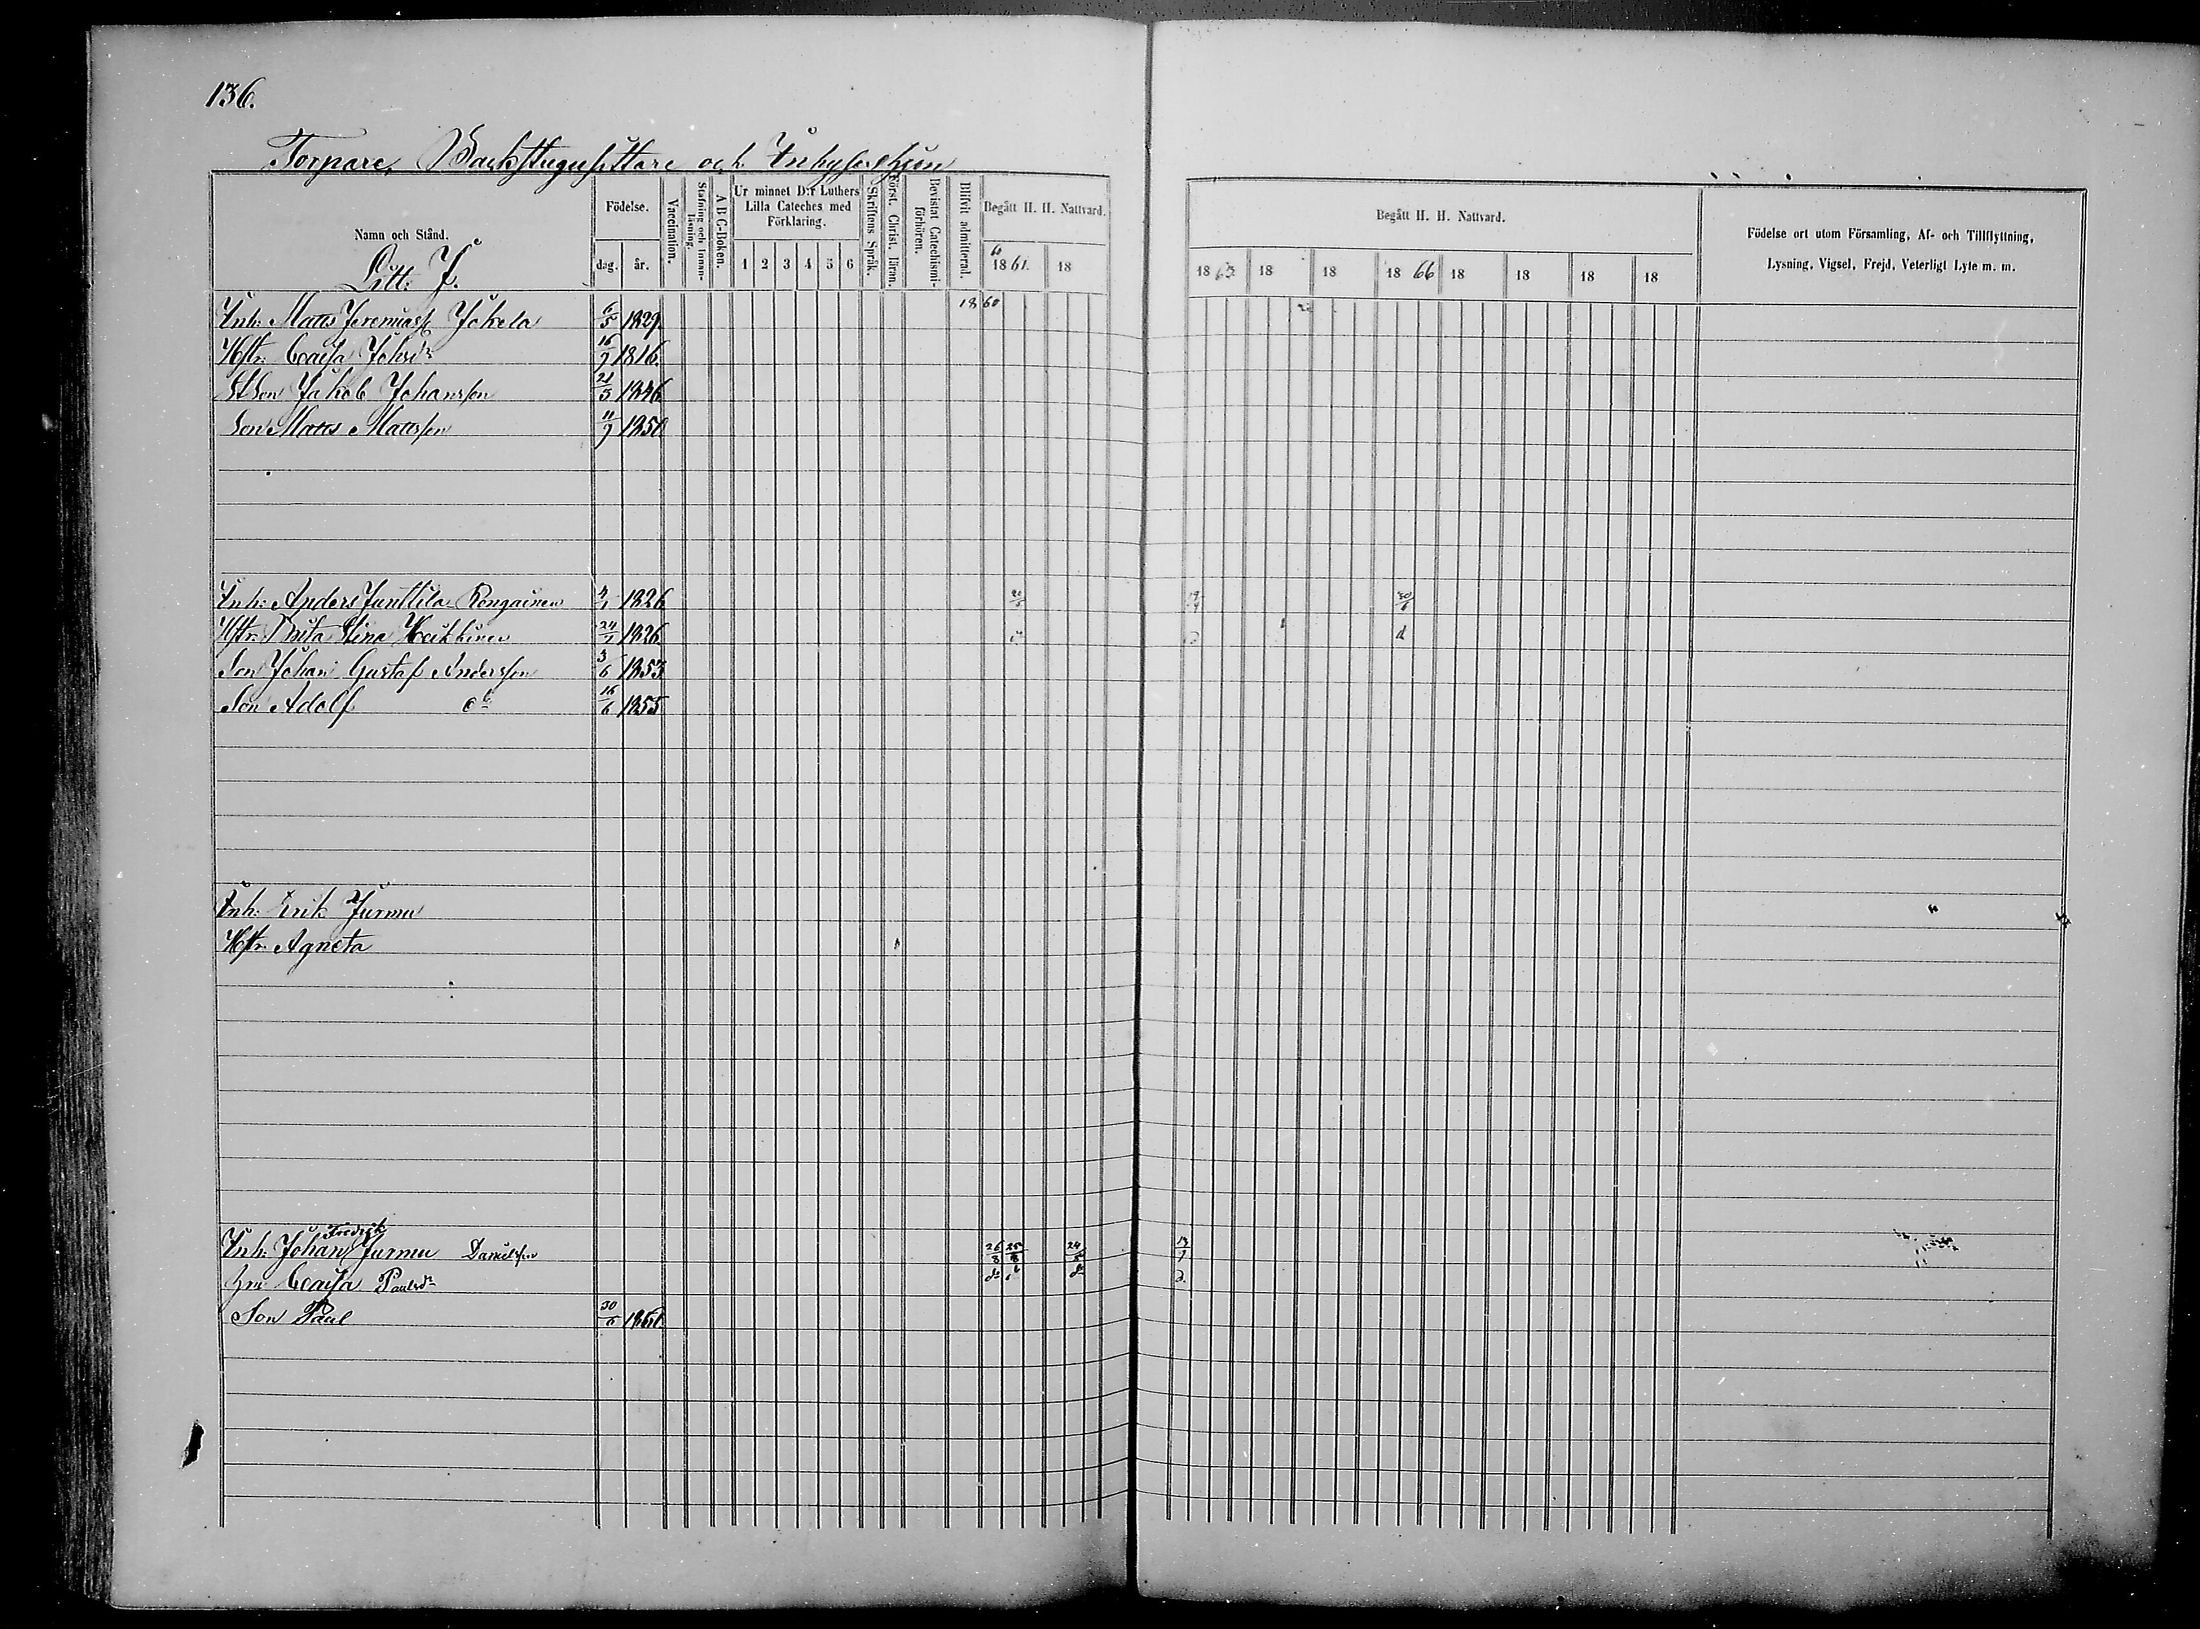 136.
Torpare, Backstugusittare och Inhyseshjon
Namn och Stånd.
Litt: J.
Födelse.
dag. år.
Vaccination.
Stafning och Innanläsning.
A B C-Boken.
Ur minnet D:r Luthers Lilla Cateches med Förklaring.
1 2 3 4 5 6
Skriftens Språk.
Först. Christ. läran.
Bevistat Catechismiförhören.
Blifvit admitterad.
Begått H. H. Nattvard.
60
18 61. 18
Begått H. H. Nattvard.
18 63 18 18 18 66 18 18 18 18
Födelse ort utom Församling, Af- och Tillflyttning,
Lysning, Vigsel, Frejd, Veterligt Lyte m. m.
Inh: Matts Jeremiass Jokela 6/5 1829. 1860
Hstr: Caisa Johsdr 16/9 1816.
StSon Jakob Johansson 21/3 1846
Son Matts Mattsson 11/9 1850
Inh: Anders Junttila Rongainen 4/1 1826 30/6
Hstr: Brita Stina Heikkinen 24/7 1826 d
Son Johan Gustaf Andersson 3/6 1853
Son Adolf do 16/6 1855
Inh: Erik Jurmu
Hstr: Agneta
Fredrik
Inh: Johan Jurmu Danielsson 26/3 25/8 24/5 13/7
Caisa Paulsdr
Son Paul 30/6 1861